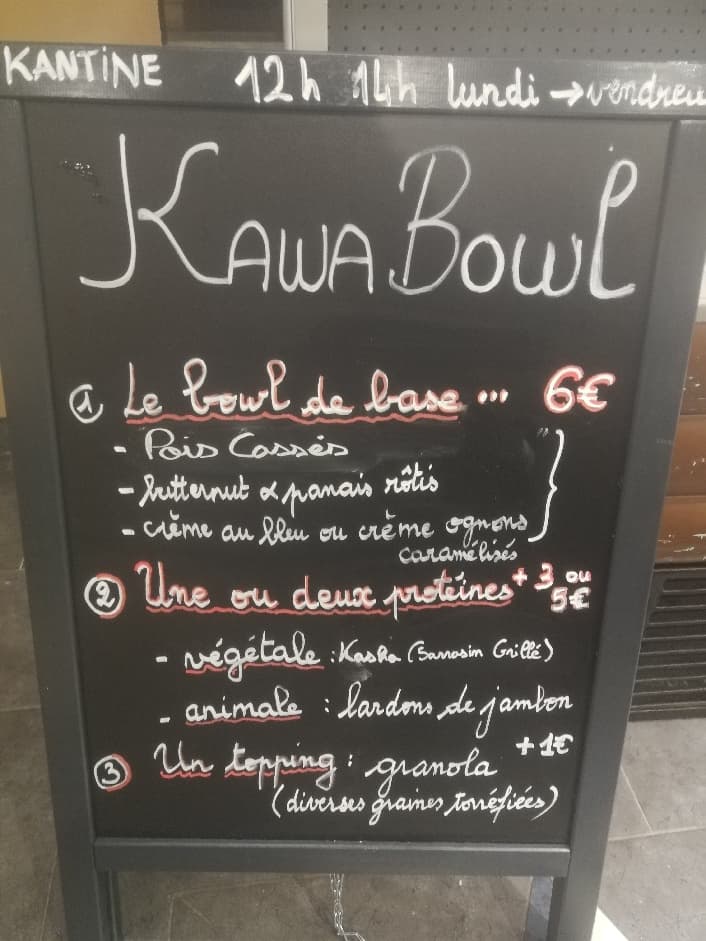 KANTINE 12h 14h lundi → vendreu
KAWA BOWL
① Le bowl de base ... 6€
- Pois Cassés
- butternut & panais rôtis
- crème au bleu ou crème ognons
caramélisés
② Une ou deux protéines + 3 ou
5€
- végétale : Kasha (Sarrasin Grillé)
- animale : lardons de jambon
③ Un topping : granola +1€
(diverses graines torréfiées)